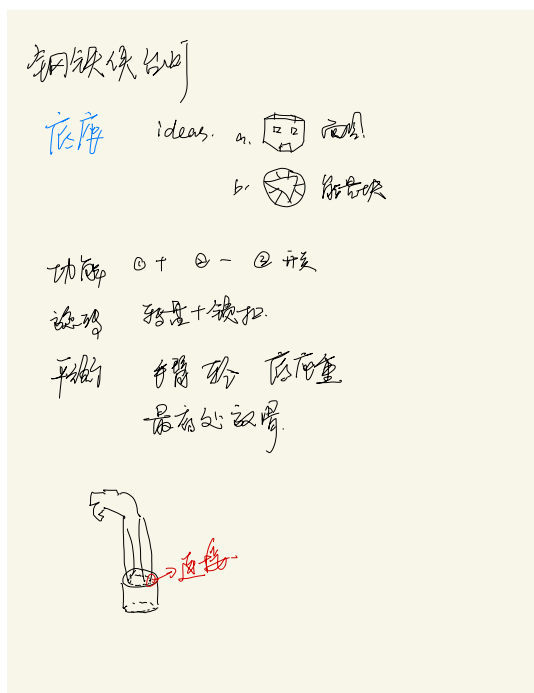 钢铁侠台灯
底座 ideas. a. 面具
b. 能量块
功能 ①+ ②- ③ 开关
转盘+锁扣.
平衡 手臂 轻 底座重
最底处放置.
连接